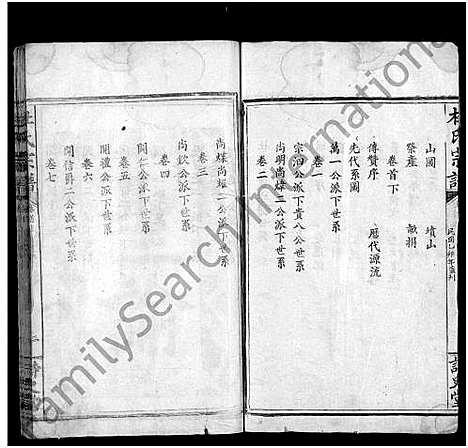 杜氏宗譜
山圖　墳山
祭產　歐捐
卷首下
傳贊序　歷代源流
先代系圖
卷一
萬一公派下世系
宗泗公派下貴八公世系
尚明尚煒二公派下世系
卷二
尚煤尚煒二公派下世系
卷三
尚欽公派下世系
卷四
開仁公派下世系
卷五
開禮公派下世系
卷六
開信爵二公派下世系
卷七
民國乙卯年重刊
FamilySearch International